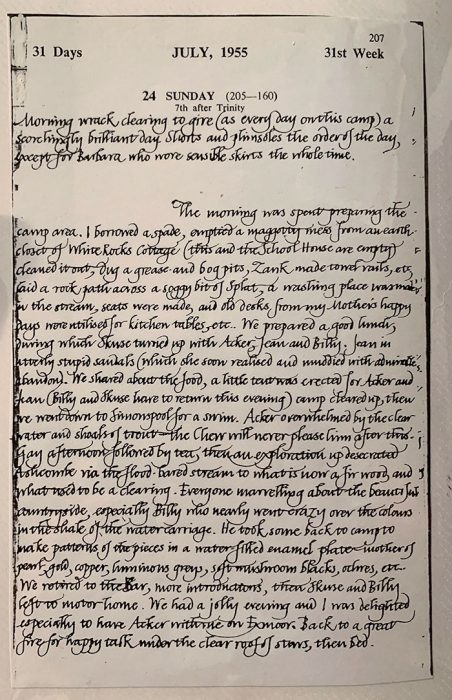 207
31 Days JULY, 1955 31st Week
24 SUNDAY (205—160)
7th after Trinity
Morning wrack, clearing to give (as every day on this camp) a
scorchingly brilliant day. Shorts and plimsoles the order of the day,
except for Barbara who wore sensible skirts the whole time.
The morning was spent preparing the
camp area. I borrowed a spade, emptied a maggotty mess from an earth
closet of White Rocks Cottage (this and the School House are empty)
cleaned it out, dug a grease and bog pits, Zank made towel rails, etc,
laid a rock path across a soggy bit of splat, a washing place was made
in the stream, seats were made, and old desks from my Mother's happy
days were utilised for kitchen tables, etc.. We prepared a good lunch,
during which Skuse turned up with Acker, Jean and Billy. Jean in
utterly stupid sandals (which she soon realised and muddied with admirable
abandon). We shared about the food, a little tent was erected for Acker and
Jean (Billy and Skuse have to return this evening) camp cleared up, then
we went down to Simonspool for a swim. Acker overwhelmed by the clear
water and shoals of trout — the Chew will never please him after this.
afternoon followed by tea, then an exploration up desecrated
Ashcombe via the flood-bared stream to what is now a fir wood, and
what used to be a clearing. Everyone marvelling about the beautiful
countryside, especially Billy who nearly went crazy over the colours
in the shale of the water carriage. He took some back to camp to
make patterns of the pieces in a water filled enamel plate — mother of
pearl, gold, copper, luminous greys, soft mushroom blacks, ochres, etc..
We retired to the Bar, more introductions, then Skuse and Billy
left to motor home. We had a jolly evening and I was delighted
especially to have Acker with me on Exmoor. Back to a great
fire for happy talk under the clear roof of stars, then bed.